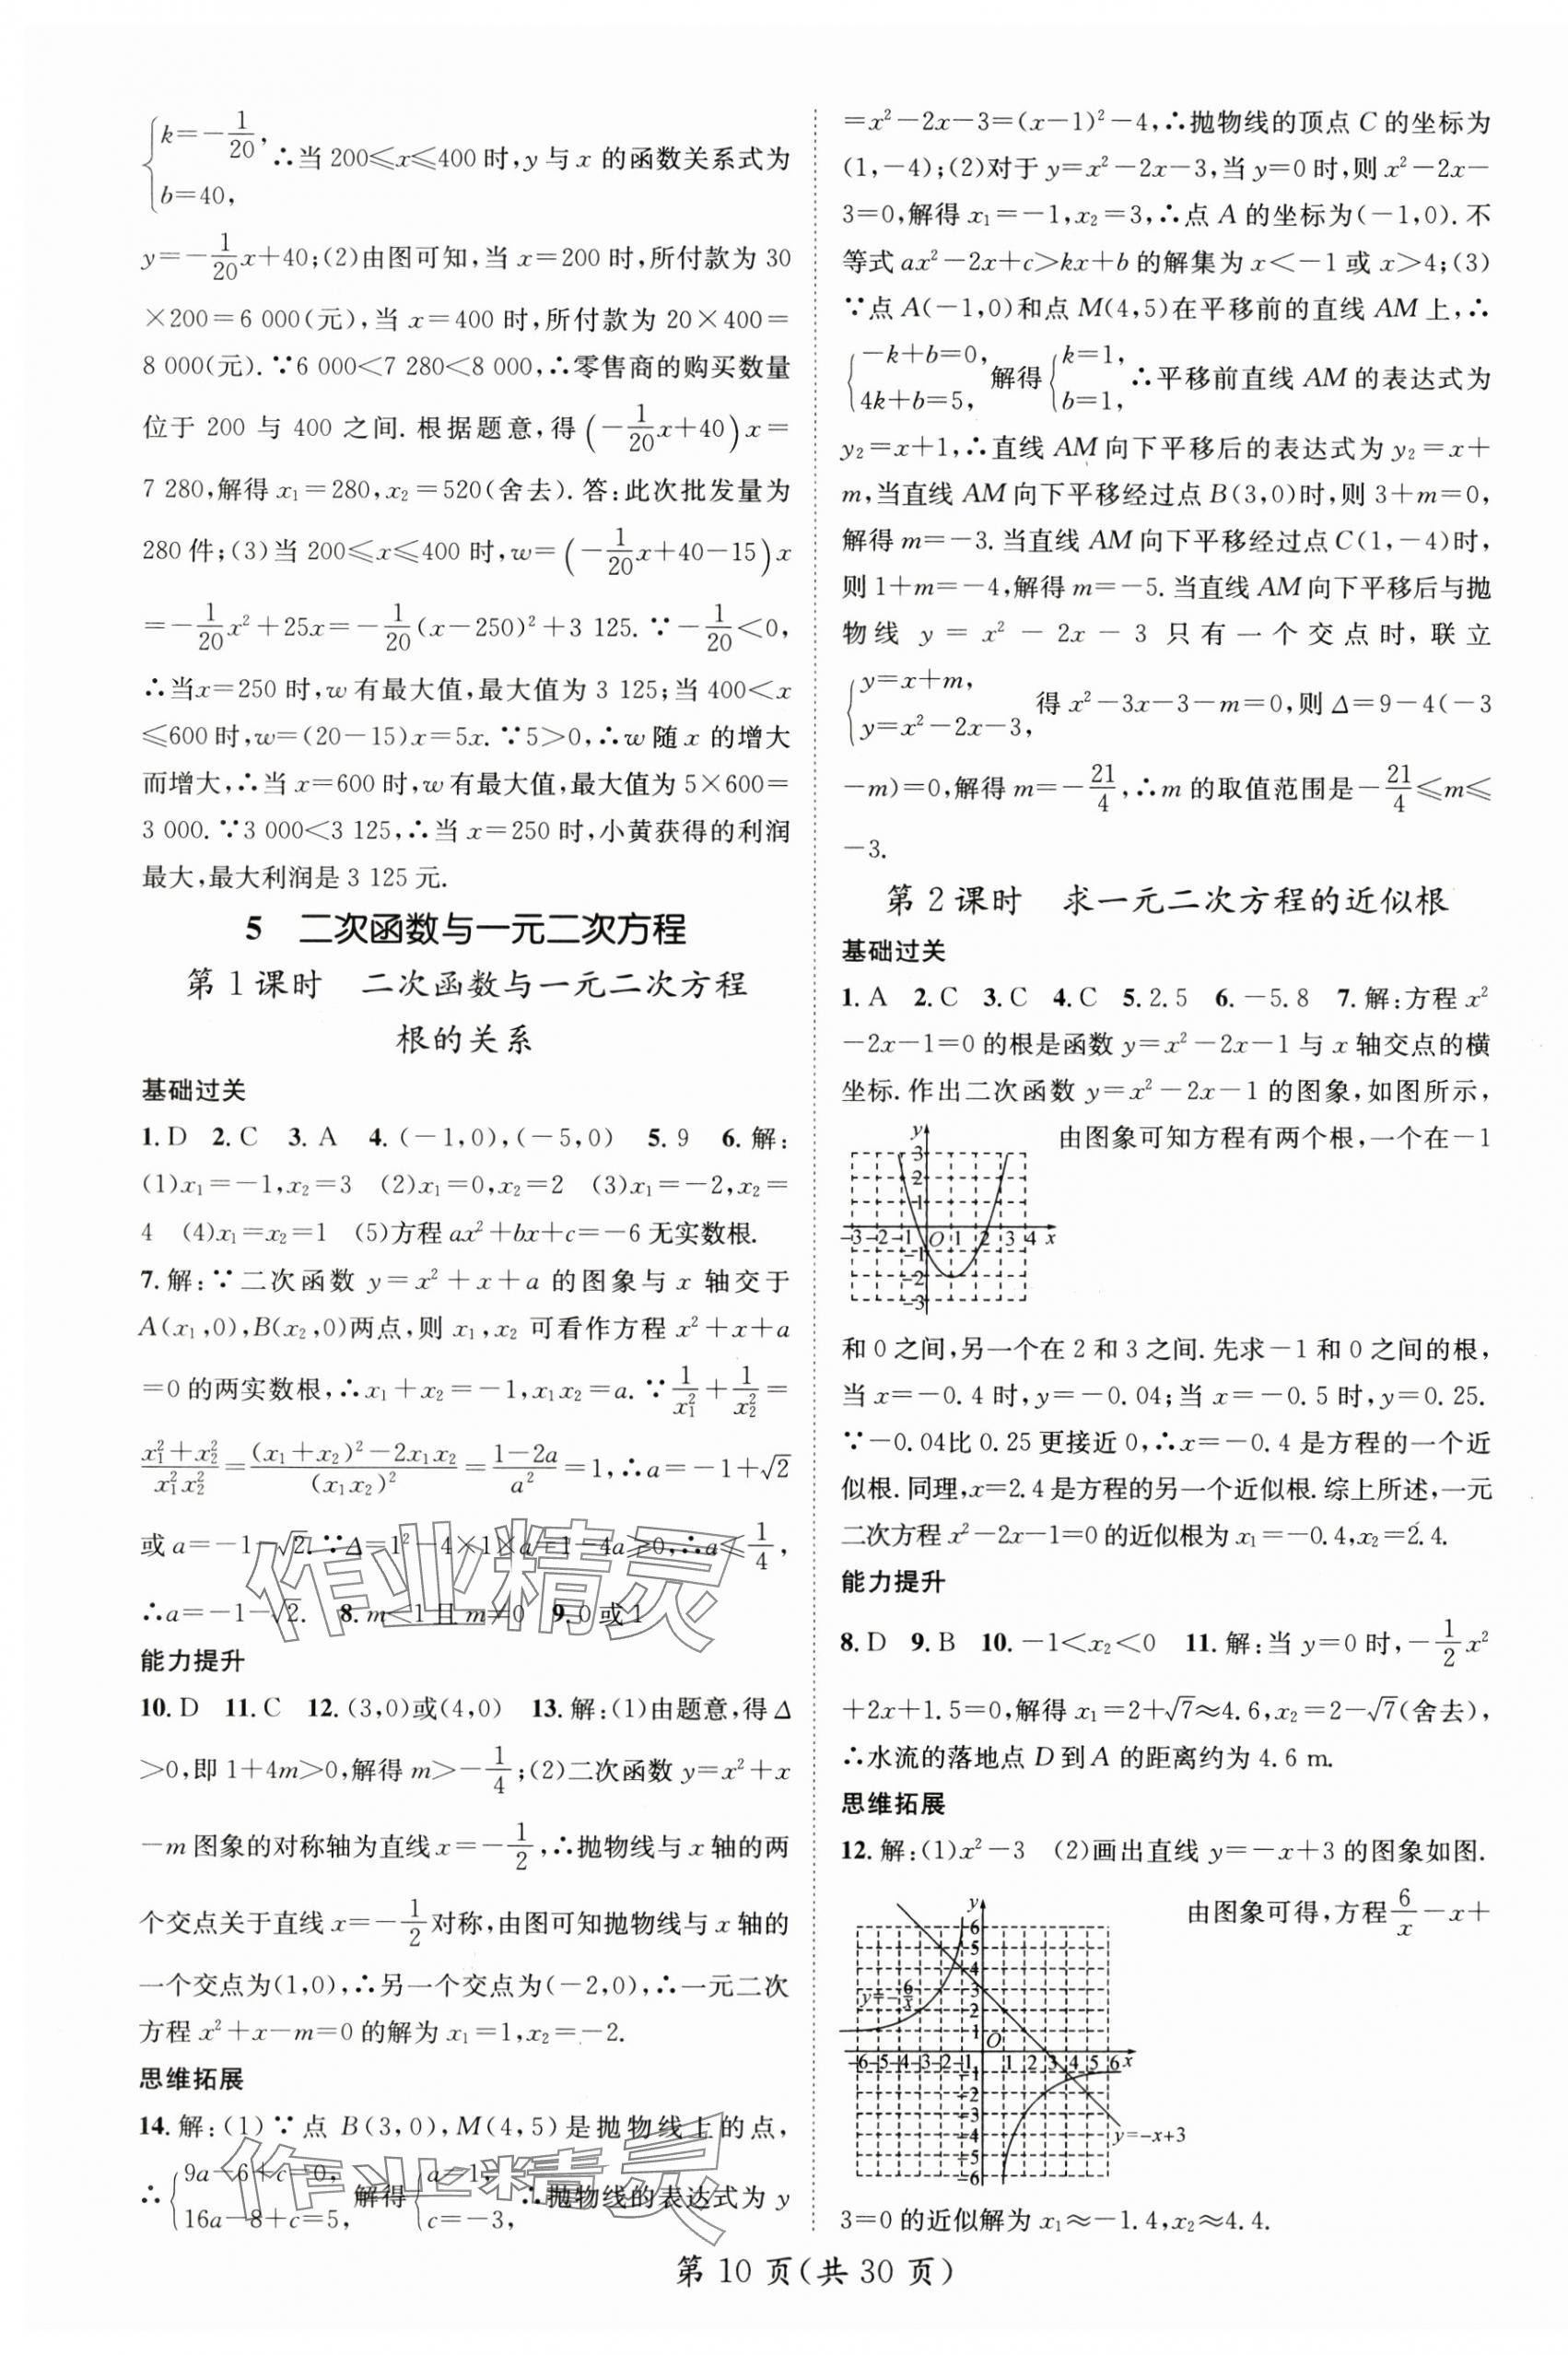 {k=-1/20, b=40, ∴当 200≤x≤400 时,y 与 x 的函数关系式为
y=-1/20x+40;(2)由图可知,当 x=200 时,所付款为 30
×200=6 000(元),当 x=400 时,所付款为 20×400=
8 000(元).∵6 000<7 280<8 000,∴零售商的购买数量
位于 200 与 400 之间.根据题意,得(-1/20x+40)x=
7 280,解得 x₁=280,x₂=520(舍去).答:此次批发量为
280 件;(3)当 200≤x≤400 时,w=(-1/20x+40-15)x
=-1/20x²+25x=-1/20(x-250)²+3 125.∵-1/20<0,
∴当x=250 时,w 有最大值,最大值为 3 125;当 400<x
≤600时,w=(20-15)x=5x.∵5>0,∴w 随 x 的增大
而增大,∴当 x=600 时,w 有最大值,最大值为 5×600=
3 000.∵3 000<3 125,∴当 x=250 时,小黄获得的利润
最大,最大利润是 3 125 元.
5 二次函数与一元二次方程
第 1 课时 二次函数与一元二次方程
根的关系
基础过关
1.D 2.C 3.A 4.(-1,0),(-5,0) 5.9 6.解:
(1)x₁=-1,x₂=3 (2)x₁=0,x₂=2 (3)x₁=-2,x₂=
4 (4)x₁=x₂=1 (5)方程 ax²+bx+c=-6 无实数根.
7.解:∵二次函数 y=x²+x+a 的图象与 x 轴交于
A(x₁,0),B(x₂,0)两点,则 x₁,x₂ 可看作方程 x²+x+a
=0 的两实数根,∴x₁+x₂=-1,x₁x₂=a.∵1/x₁²+1/x₂²=
(x₁²+x₂²)/(x₁²x₂²)=((x₁+x₂)²-2x₁x₂)/(x₁x₂)²=(1-2a)/a²=1,∴a=-1+√2
或 a=-1-√2.∵Δ=1²-4×1×a=1-4a≥0,∴a≤1/4,
∴a=-1-√2. 8.m<1 且 m≠0 9.0 或 1
能力提升
10.D 11.C 12.(3,0)或(4,0) 13.解:(1)由题意,得 Δ
>0,即 1+4m>0,解得 m>-1/4;(2)二次函数 y=x²+x
-m 图象的对称轴为直线 x=-1/2,∴抛物线与 x 轴的两
个交点关于直线 x=-1/2对称,由图可知抛物线与 x 轴的
一个交点为(1,0),∴另一个交点为(-2,0),∴一元二次
方程 x²+x-m=0 的解为 x₁=1,x₂=-2.
思维拓展
14.解:(1)∵点 B(3,0),M(4,5)是抛物线上的点,
∴{9a-6+c=0, 16a-8+c=5, 解得{a=1, c=-3, ∴抛物线的表达式为 y
=x²-2x-3=(x-1)²-4,∴抛物线的顶点 C 的坐标为
(1,-4);(2)对于 y=x²-2x-3,当 y=0 时,则 x²-2x-
3=0,解得 x₁=-1,x₂=3,∴点 A 的坐标为(-1,0).不
等式 ax²-2x+c>kx+b 的解集为 x<-1 或 x>4;(3)
∵点 A(-1,0)和点 M(4,5)在平移前的直线 AM 上,∴
{-k+b=0, 4k+b=5, 解得{k=1, b=1, ∴平移前直线 AM 的表达式为
y₂=x+1,∴直线 AM 向下平移后的表达式为 y₂=x+
m,当直线 AM 向下平移经过点 B(3,0)时,则 3+m=0,
解得 m=-3.当直线 AM 向下平移经过点 C(1,-4)时,
则 1+m=-4,解得 m=-5.当直线 AM 向下平移后与抛
物线 y=x²-2x-3 只有一个交点时,联立
{y=x+m, y=x²-2x-3, 得 x²-3x-3-m=0,则 Δ=9-4(-3
-m)=0,解得 m=-21/4,∴m 的取值范围是-21/4≤m≤
-3.
第 2 课时 求一元二次方程的近似根
基础过关
1.A 2.C 3.C 4.C 5.2.5 6.-5.8 7.解:方程 x²
-2x-1=0 的根是函数 y=x²-2x-1 与 x 轴交点的横
坐标.作出二次函数 y=x²-2x-1 的图象,如图所示,
由图象可知方程有两个根,一个在-1
y
3
2
1
-3 -2 -1 O 1 2 3 4 x
-1
-2
-3
和 0 之间,另一个在 2 和 3 之间.先求-1 和 0 之间的根,
当 x=-0.4 时,y=-0.04;当 x=-0.5 时,y=0.25.
∵-0.04比 0.25 更接近 0,∴x=-0.4 是方程的一个近
似根.同理,x=2.4 是方程的另一个近似根.综上所述,一元
二次方程 x²-2x-1=0 的近似根为 x₁=-0.4,x₂=2.4.
能力提升
8.D 9.B 10.-1<x₂<0 11.解:当 y=0 时,-1/2x²
+2x+1.5=0,解得 x₁=2+√7≈4.6,x₂=2-√7(舍去),
∴水流的落地点 D 到 A 的距离约为 4.6 m.
思维拓展
12.解:(1)x²-3 (2)画出直线 y=-x+3 的图象如图.
由图象可得,方程6/x-x+
y
6
5
4
3
2
1
y=-6/x
O
-6-5-4-3-2-1 1 2 3 4 5 6 x
-1
-2
-3
-4
-5
-6
y=-x+3
3=0 的近似解为 x₁≈-1.4,x₂≈4.4.
第 10 页(共 30 页)
作业精灵
作业精灵